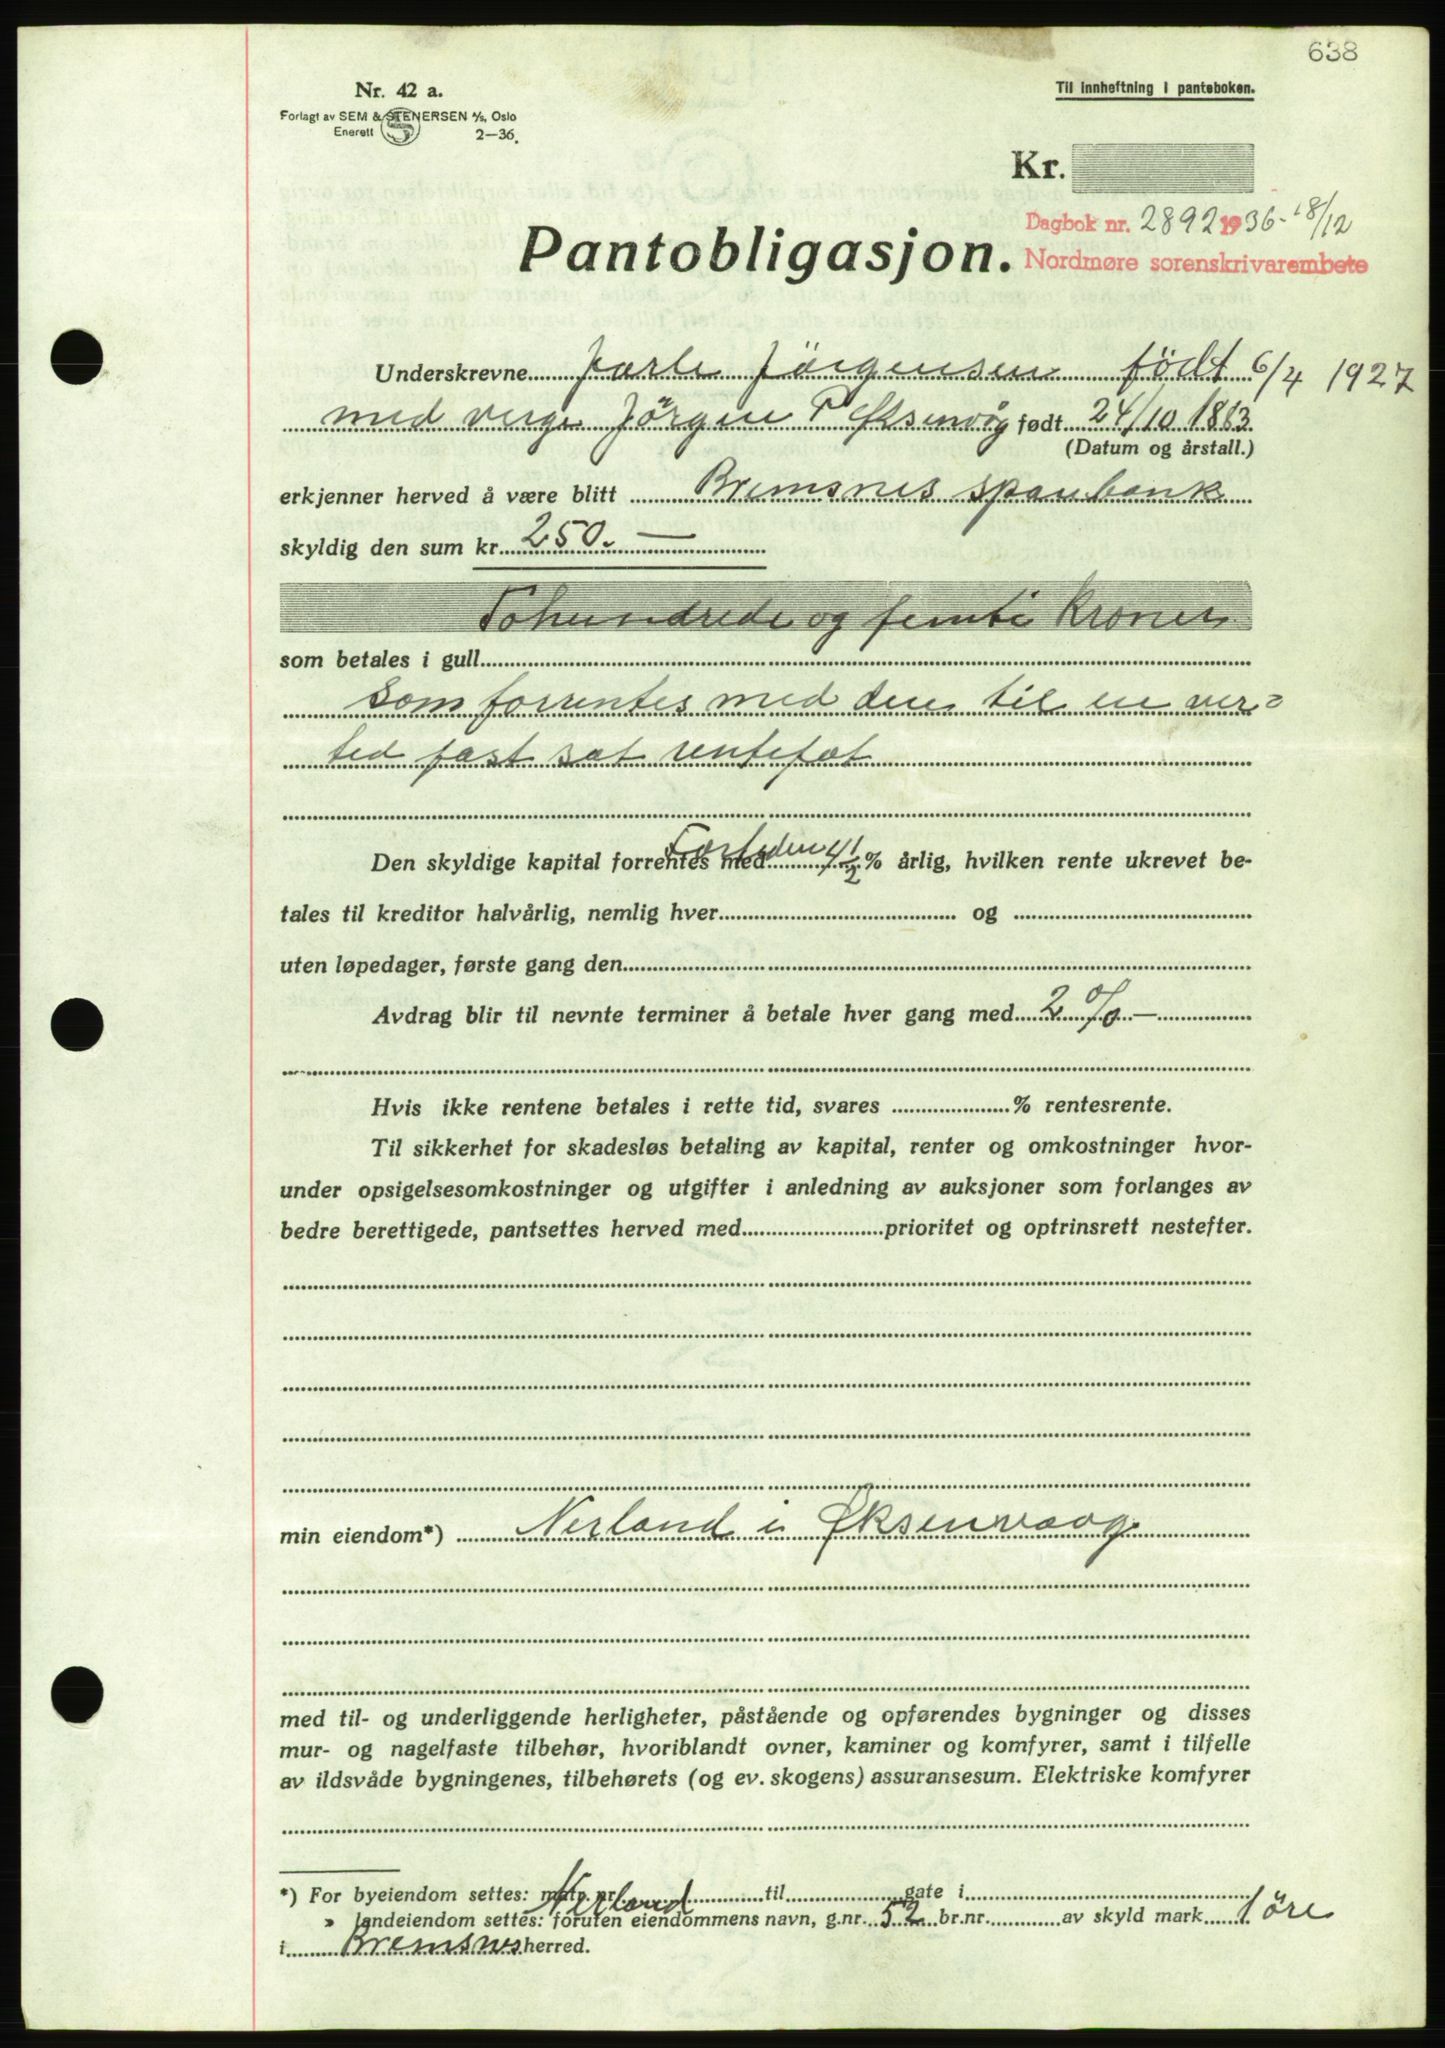 638
Nr. 42 a.
Forlagt av SEM & STENERSEN A/S, Oslo
Enerett 2—36.
Til innheftning i panteboken.
Kr.
Dagbok nr. 2892 1936 - 18/12
Nordmøre sorenskrivarembete
Pantobligasjon.
Underskrevne Jarle Jörgensen født 6/4 1927
med verge Jörgen P Øksenvåg født 24/10 1883
(Datum og årstall.)
erkjenner herved å være blitt Bremsnes sparebank
skyldig den sum kr. 250.—
Tohundrede og femti Kroner
som betales i gull
som forrentes med den til en ver=
tid fast sat rentefot
For tiden
Den skyldige kapital forrentes med 4 1/2 % årlig, hvilken rente ukrevet be-
tales til kreditor halvårlig, nemlig hver og
uten løpedager, første gang den
Avdrag blir til nevnte terminer å betale hver gang med 2 % —
Hvis ikke rentene betales i rette tid, svares % rentesrente.
Til sikkerhet for skadesløs betaling av kapital, renter og omkostninger hvor-
under opsigelsesomkostninger og utgifter i anledning av auksjoner som forlanges av
bedre berettigede, pantsettes herved med prioritet og optrinsrett nestefter.
min eiendom*) Nerland i Øksenvaag
med til- og underliggende herligheter, påstående og opførendes bygninger og disses
mur- og nagelfaste tilbehør, hvoriblandt ovner, kaminer og komfyrer, samt i tilfelle
av ildsvåde bygningenes, tilbehørets (og ev. skogens) assuransesum. Elektriske komfyrer
*) For byeiendom settes: matr. nr. til gate i
Nerland
» landeiendom settes: foruten eiendommens navn, g.nr. 52 br.nr. av skyld mark 1 öre
i Bremsnes herred.